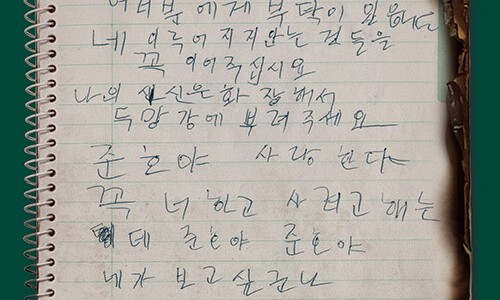 여러분에게 부탁이 있읍니다
네 이루어지지안는 것들을
꼭 이어주십시요
나의 시신은 화장해서
두망강에 뿌려주세요
준호야 사랑한다
꼭 너하고 사려고 해는
데 준호야 준호야
네가 보고싶구나